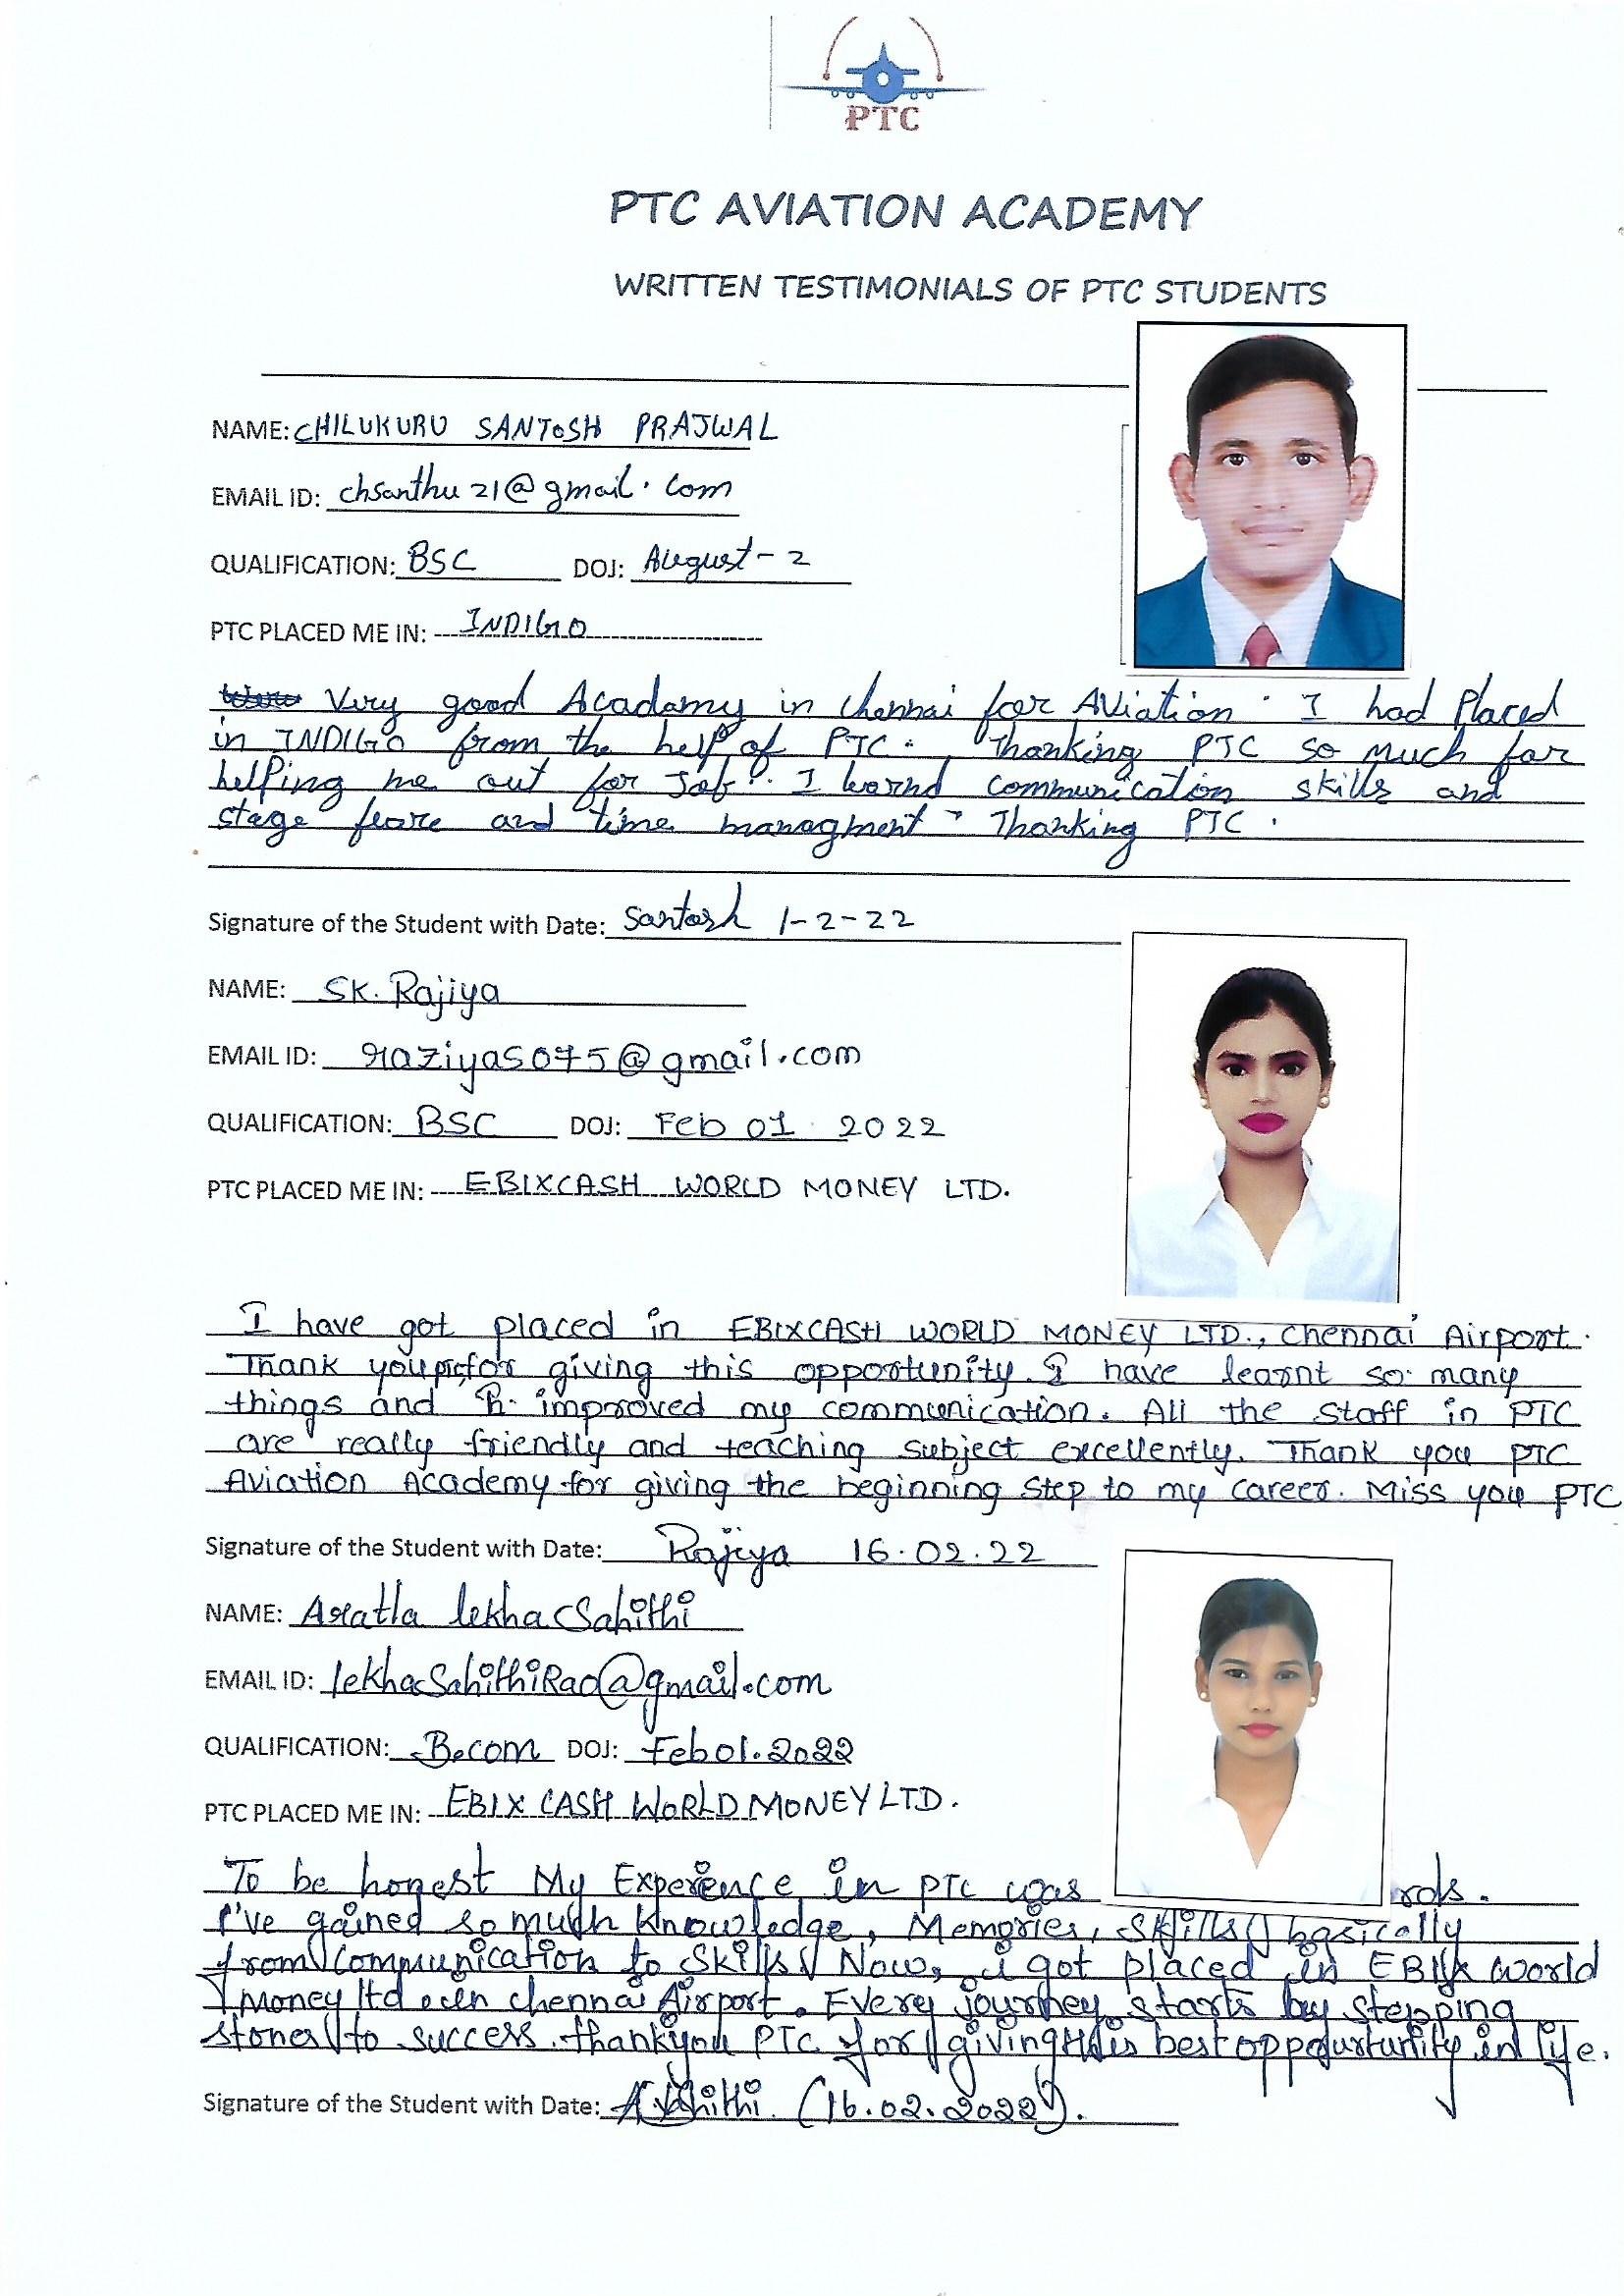 PTC
PTC AVIATION ACADEMY
WRITTEN TESTIMONIALS OF PTC STUDENTS
NAME: CHILUKURU SANTOSH PRAJWAL
EMAIL ID: chsanthu21@gmail.com
QUALIFICATION: BSC DOJ: August-2
PTC PLACED ME IN: INDIGO
Very good Acadamy in chennai for Aviation. I had placed
in INDIGO from the help of PTC. Thanking PTC so much for
helping me out for Job. I learnd communication skills and
stage feare and time managment. Thanking PTC.
Signature of the Student with Date: Santosh 1-2-22
NAME: SK. Rajiya
EMAIL ID: raziyas075@gmail.com
QUALIFICATION: BSC DOJ: Feb 01 2022
PTC PLACED ME IN: EBIXCASH WORLD MONEY LTD.
I have got placed in EBIXCASH WORLD MONEY LTD., Chennai Airport.
Thank you for giving this opportunity. I have learnt so many
things and improved my communication. All the staff in PTC
are really friendly and teaching subject excellently. Thank you PTC
Aviation Academy for giving the beginning step to my career. Miss you PTC
Signature of the Student with Date: Rajiya 16.02.22
NAME: Aratla lekha Sahithi
EMAIL ID: lekhaSahithiRao@gmail.com
QUALIFICATION: B.com DOJ: Feb 01.2022
PTC PLACED ME IN: EBIX CASH WORLD MONEY LTD.
To be honest My Experience in PTC was rds.
I've gained so much knowledge, Memories, Skills basically
from Communication to Skills Now, i got placed in EBIX World
Money ltd in chennai Airport. Every journey starts by stepping
stones to success. thankyou PTC for giving this best oppourtunity in life.
Signature of the Student with Date: (16.02.2022).